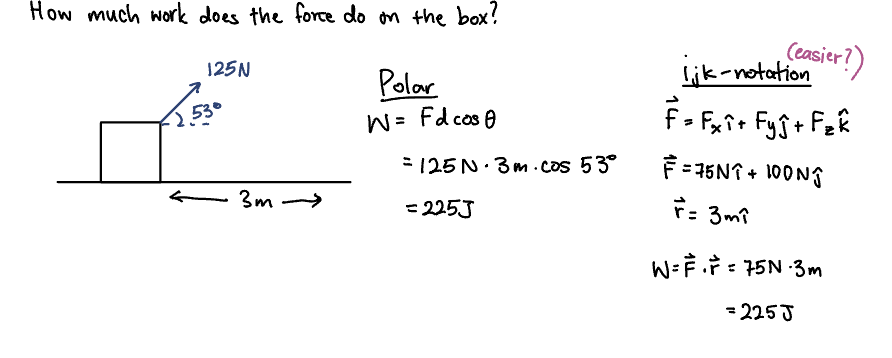 How much work does the force do on the box?
125N
53°
3m
Polar
W = Fd cos θ
= 125N · 3m · cos 53°
= 225J
(easier?)
ijk-notation
F⃗ = Fₓî + Fyĵ + F_z k̂
F⃗ = 75Nî + 100Nĵ
r⃗ = 3mî
W = F⃗ · r⃗ = 75N · 3m
= 225J